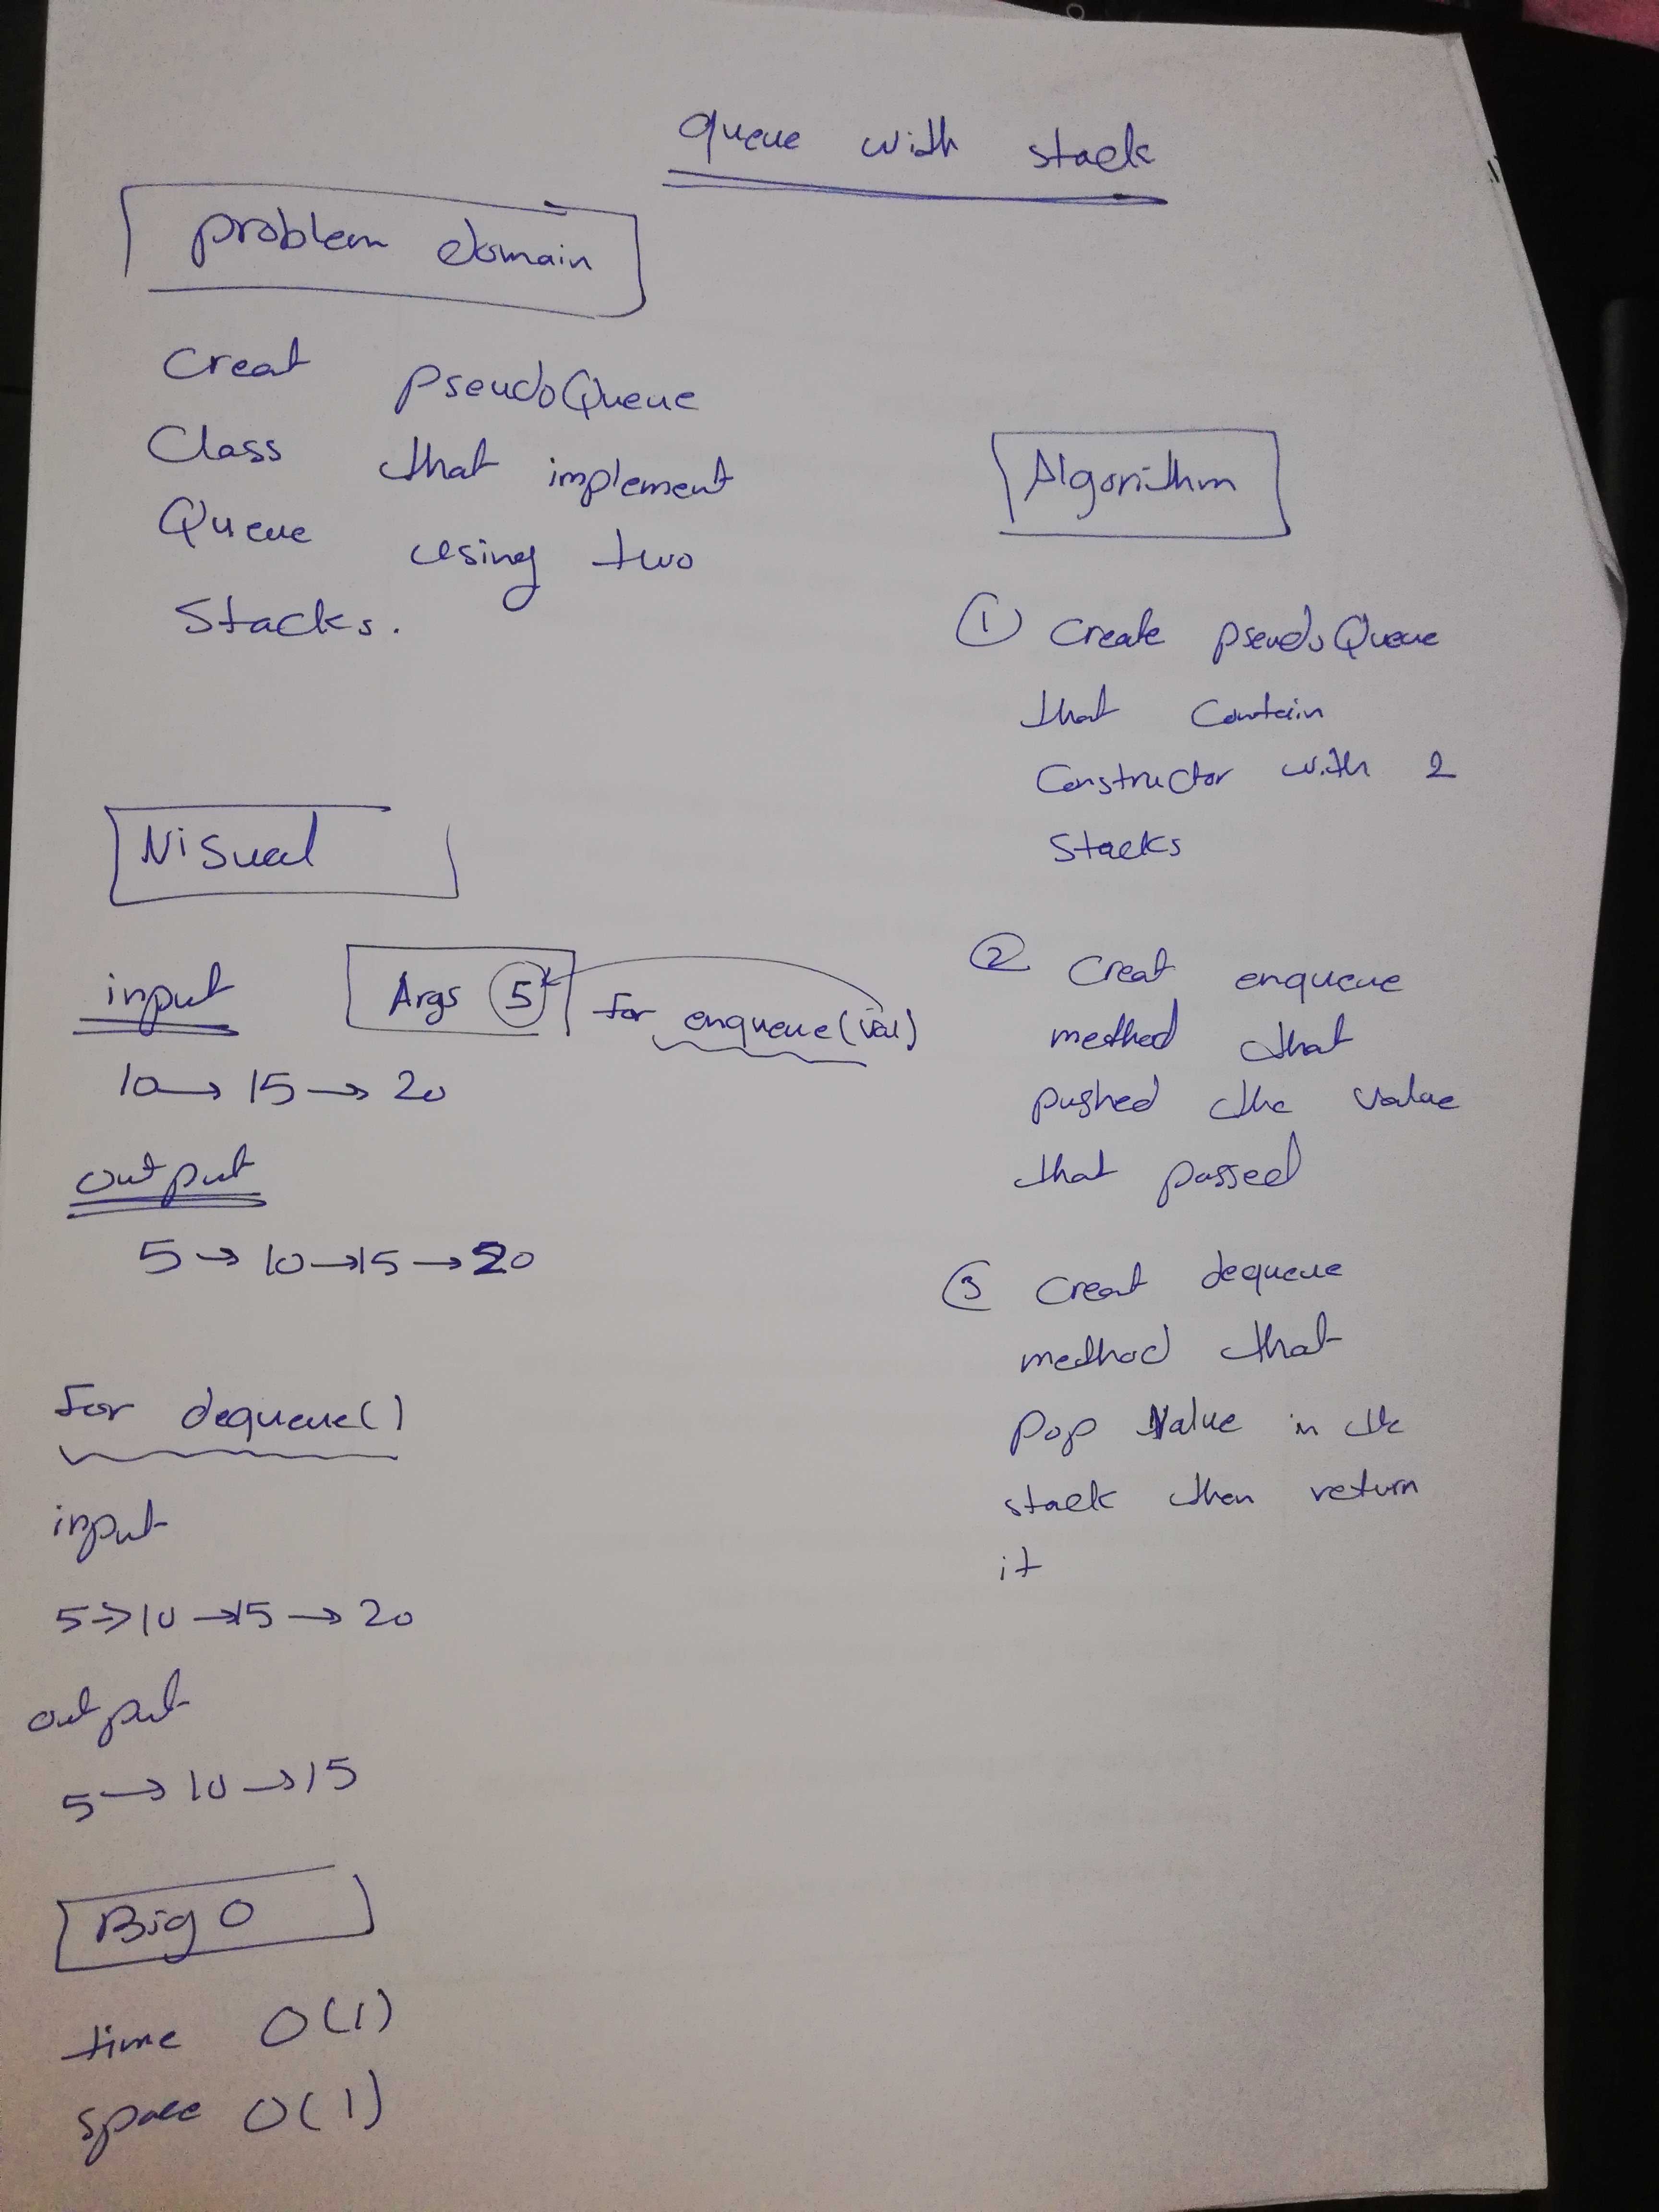 queue with stack
problem domain
Creat pseudoQueue
Class that implement
Queue using two
Stacks.
Visual
input Args 5 for enqueue(val)
10 → 15 → 20
output
5 → 10 → 15 → 20
for dequeue()
input
5 → 10 → 15 → 20
output
5 → 10 → 15
Big O
time O(1)
space O(1)
Algorithm
① Create pseudoQueue
that contain
Constructor with 2
Stacks
② Creat enqueue
method that
pushed the value
that passed
③ Creat dequeue
method that
pop value in the
stack then return
it